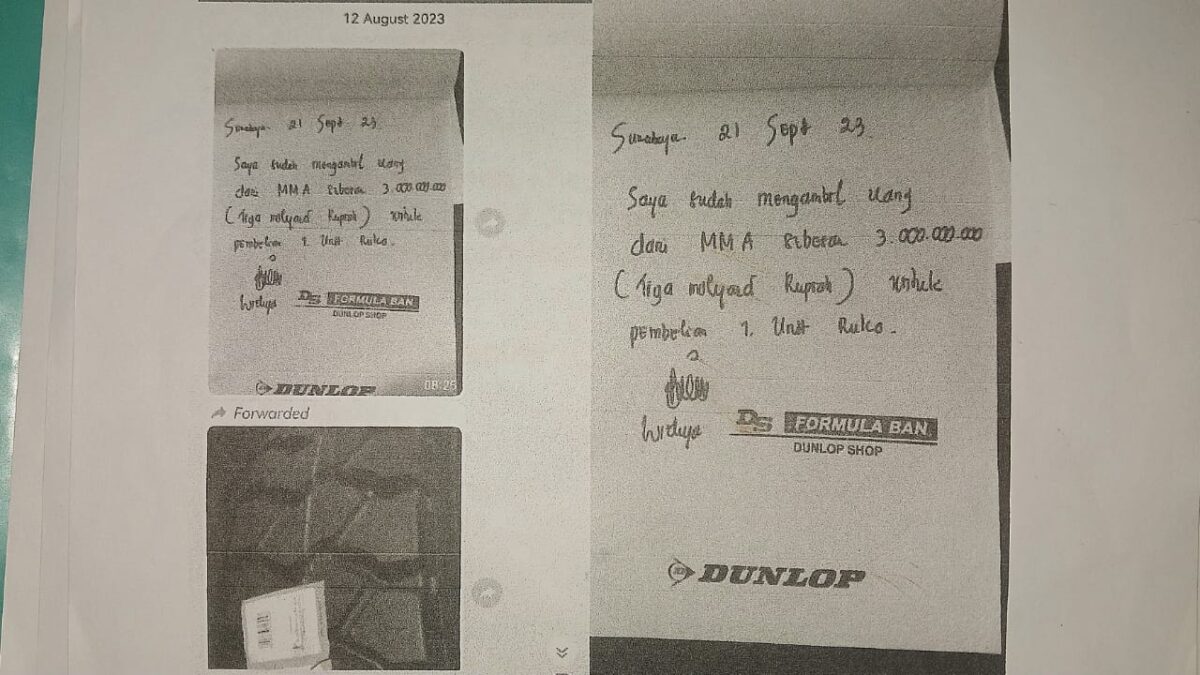 12 August 2023
Surabaya 21 Sept 23
Saya sudah mengambil uang
dari MMA sebesar 3.000.000.000
(Tiga milyard Rupiah) untuk
pembelian 1. Unit Ruko.
DS FORMULA BAN
DUNLOP SHOP
DUNLOP
08:25
Forwarded
Surabaya 21 Sept 23
Saya sudah mengambil uang
dari MMA sebesar 3.000.000.000
(Tiga milyard Rupiah) untuk
pembelian 1. Unit Ruko.
DS FORMULA BAN
DUNLOP SHOP
DUNLOP